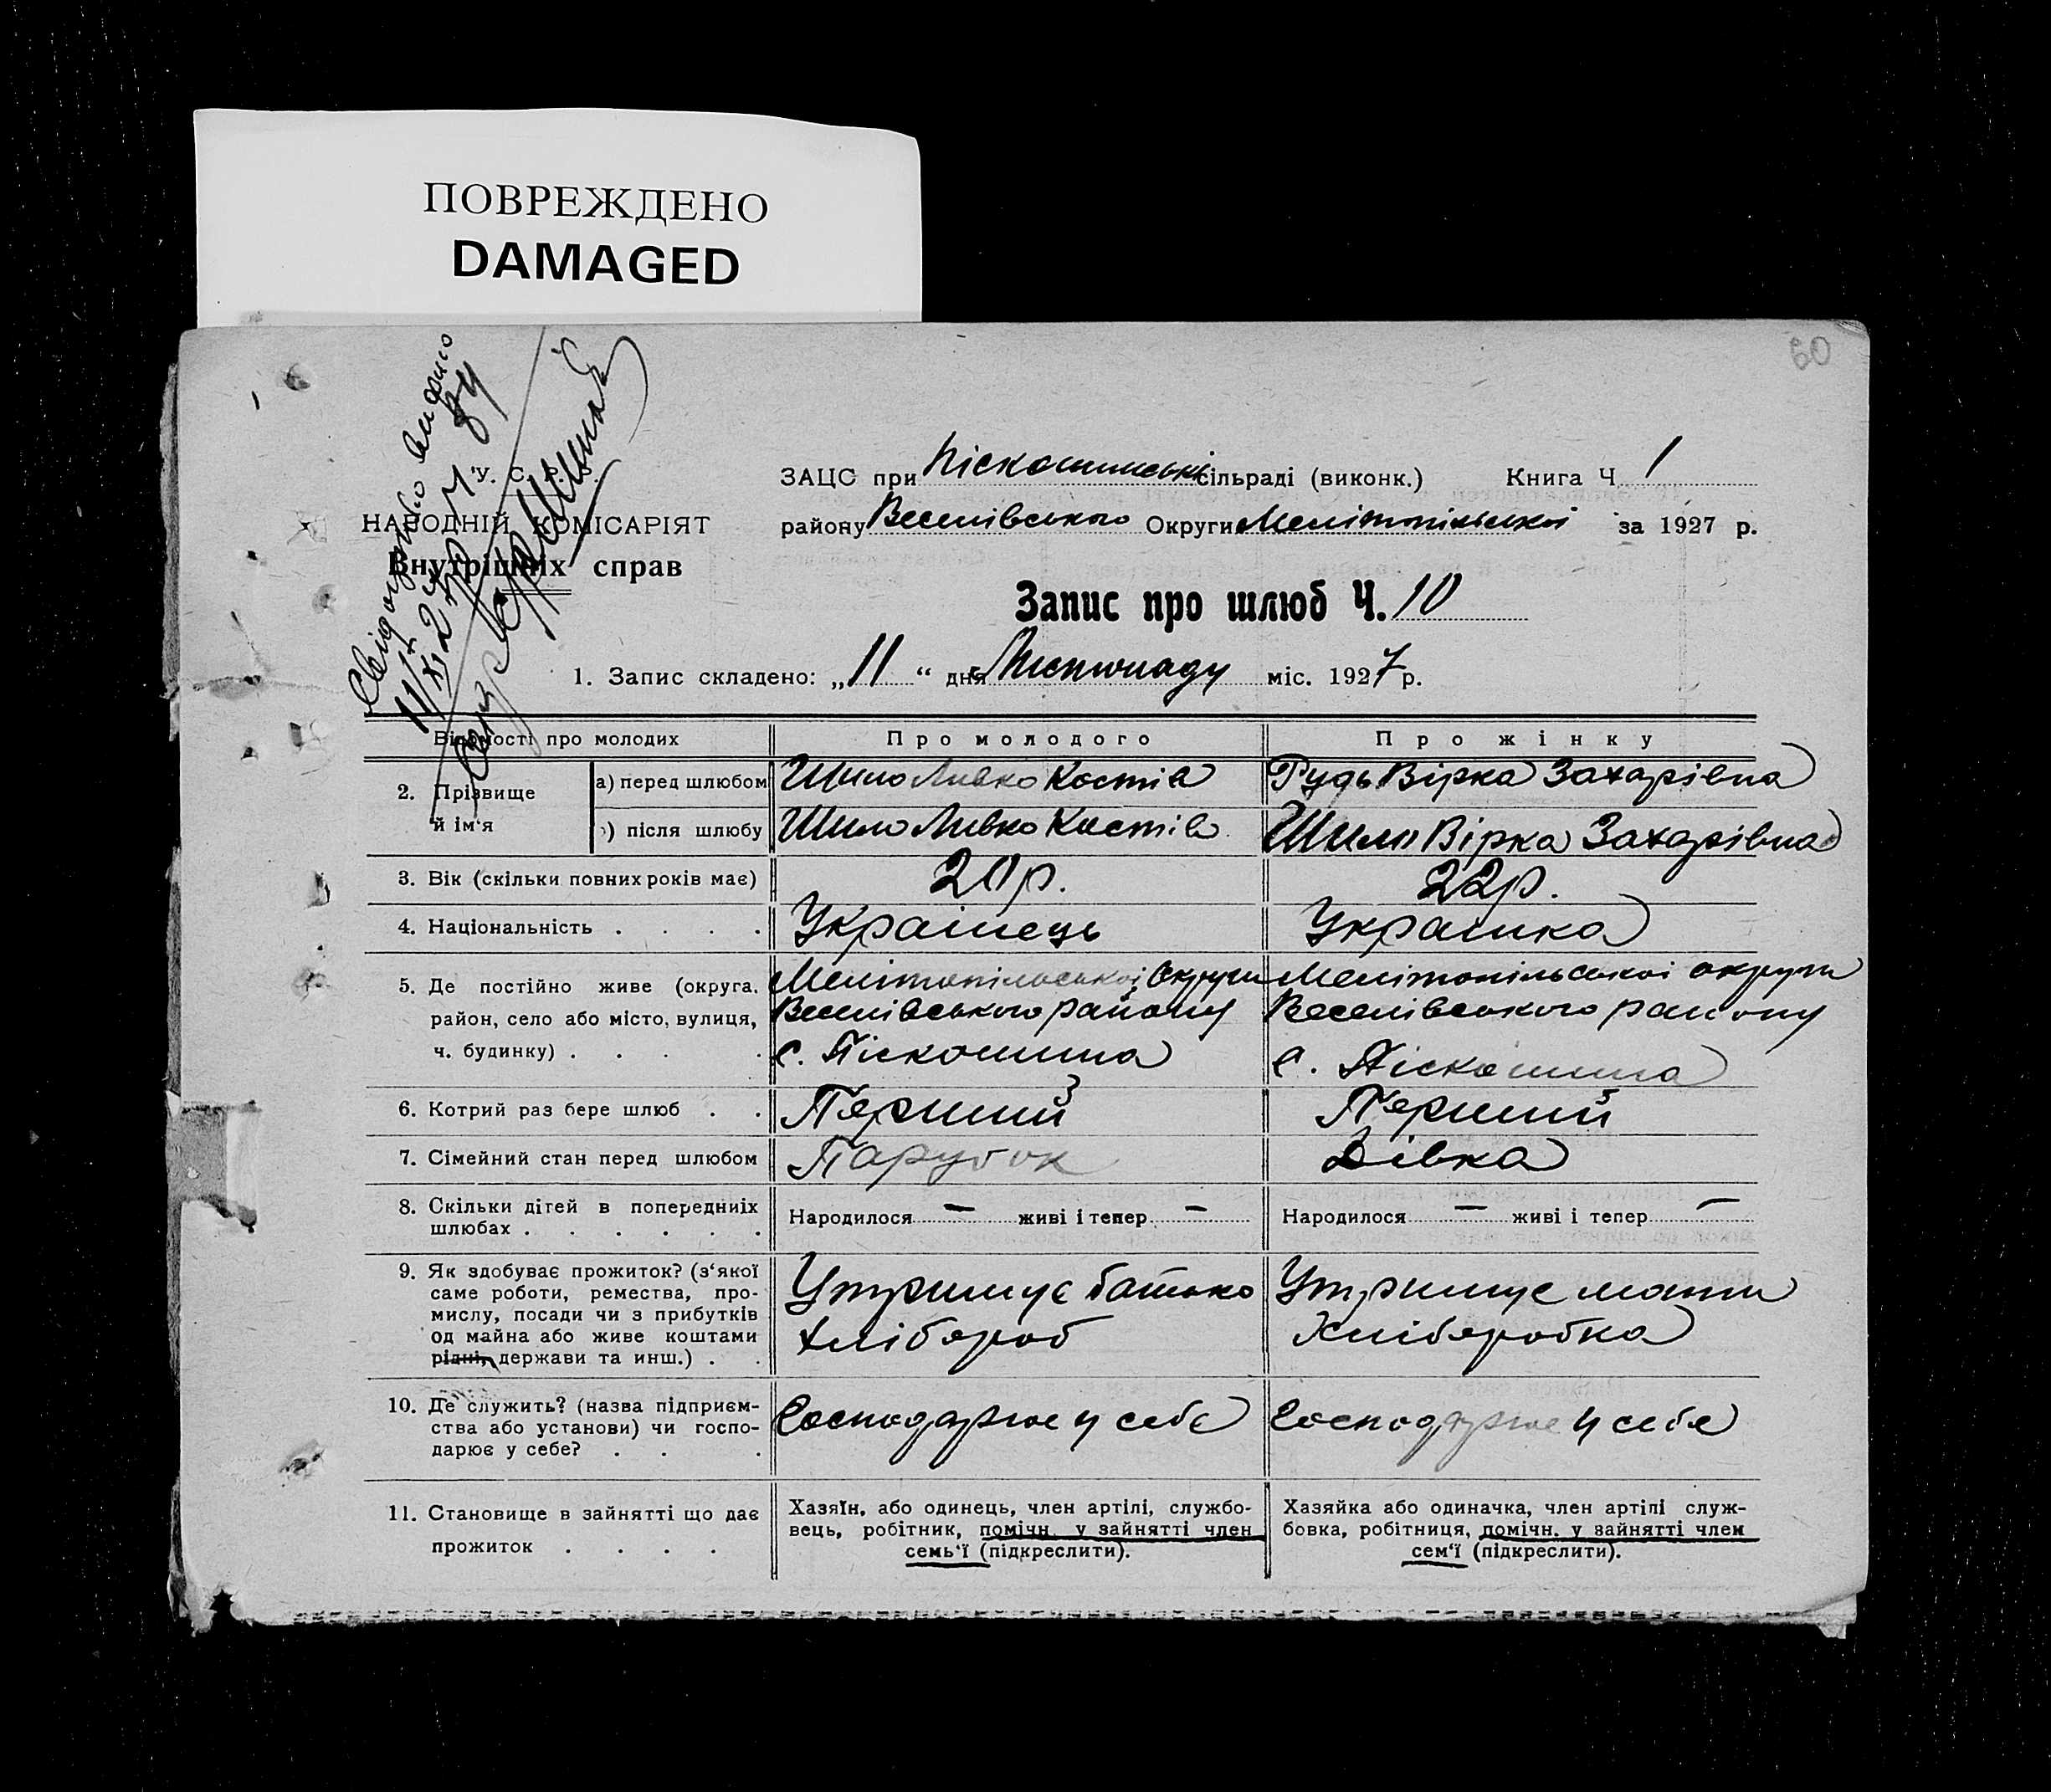 ПОВРЕЖДЕНО
DAMAGED
60
Свідоцтво видано
11/XI 27 р. Ч 84
У. С. Р. Р.
НАРОДНІЙ КОМІСАРІЯТ
Внутрішніх справ
ЗАЦС при Піскошинській сільраді (виконк.) Книга Ч. 1
району Веселівського Округи Мелітопільської за 1927 р.
Запис про шлюб Ч. 10
1. Запис складено: „11“ дня Листопаду міс. 1927 р.
Відомості про молодих Про молодого Про жінку
2. Прізвище й ім‘я
а) перед шлюбом Шило Ливко Костів Рудь Вірка Захарівна
б) після шлюбу Шило Ливко Костів Шило Вірка Захарівна
3. Вік (скільки повних років має) 20 р. 22 р.
4. Національність . . . . Українець Українка
5. Де постійно живе (округа, Мелітопільської Округи Мелітопільської округи
район, село або місто, вулиця, Веселівського району Веселівського району
ч. будинку) . . . . с. Піскошина с. Піскошина
6. Котрий раз бере шлюб . . Перший Перший
7. Сімейний стан перед шлюбом Парубок Дівка
8. Скільки дітей в попередніх
шлюбах . . . . . . Народилося — живі і тепер — Народилося — живі і тепер —
9. Як здобуває прожиток? (з‘якої
саме роботи, ремества, про- Утримує батько Утримує мати
мислу, посади чи з прибутків
од майна або живе коштами хлібороб Хліборобка
рідні, держави та инш.) . .
10. Де служить? (назва підприєм-
ства або установи) чи госпо- Господарює у себе Господарює у себе
дарює у себе? . . .
11. Становище в зайнятті що дає Хазяїн, або одинець, член артілі, службо- Хазяйка або одиначка, член артілі служ-
прожиток . . . . вець, робітник, помічн. у зайнятті член бовка, робітниця, помічн. у зайнятті член
семь‘ї (підкреслити). сем‘ї (підкреслити).